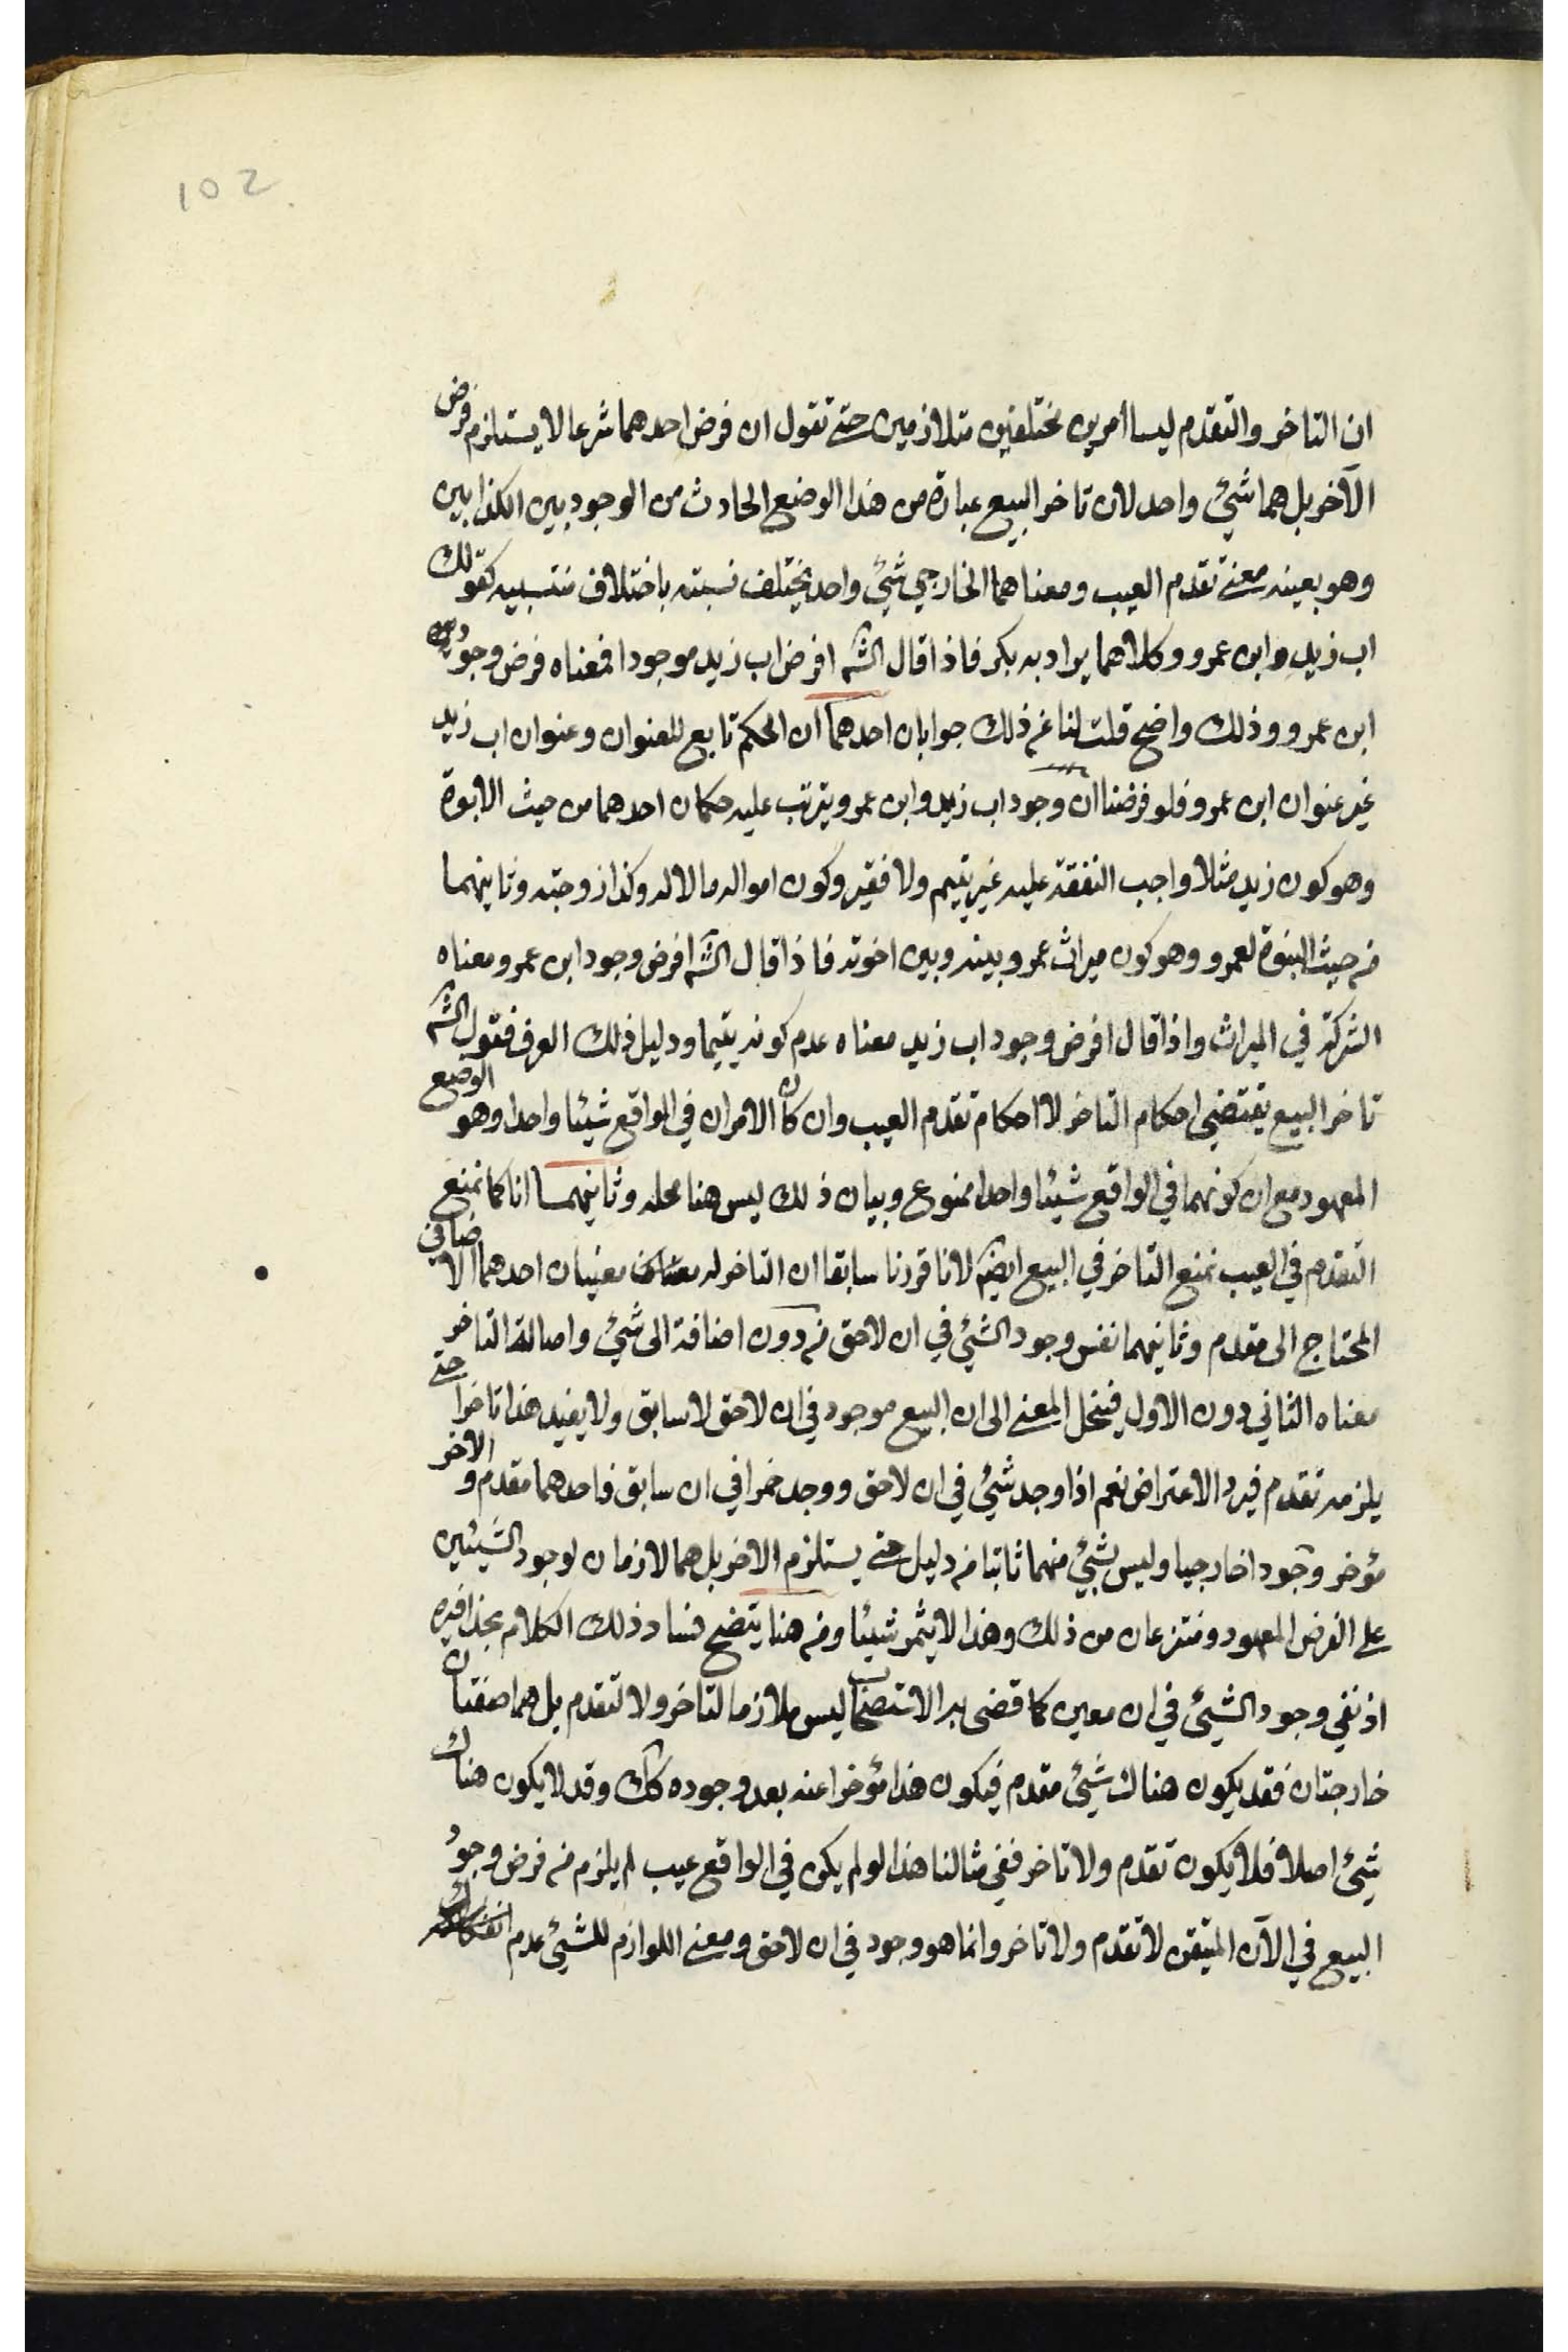 102
ان التاخر والتقدم ليسا أمرين مختلفين متلازمين حتى تقول ان فرض احدهما شرعا لا يستلزم فرض
الآخر بل هما شيئ واحد لان تاخر البيع عبارة من هذا الوضع الحادث من الوجود بين الكذابين
وهو بعينه معنى تقدم العيب ومعناهما الخارجي شيئ واحد يختلف نسبته باختلاف منتسبيه كقولك
اب زيد وابن عمرو وكلاهما يراد به بكر فاذا قال الشه افرض اب زيد موجودا فمعناه فرض وجود
ابن عمرو وذلك واضح قلت لنا عن ذلك جوابان احدهما ان الحكم تابع للعنوان وعنوان اب زيد
غير عنوان ابن عمرو فلو فرضنا ان وجود اب زيد وابن عمرو يترتب عليه حكمان احدهما من حيث الابوة
وهو كون زيد مثلا واجب النفقة عليه غير يتيم ولا فقير وكون امواله مالا له وكذا زوجته وثانيهما
من حيث البنوة لعمرو وهو كون ميراث عمرو بينه وبين اخوته فاذا قال الشه افرض وجود ابن عمرو معناه
الشركة في الميراث واذا قال افرض وجود اب زيد معناه عدم كونه يتيما ودليل ذلك العرف فقول الشه
تاخر البيع يقتضي احكام التاخر لا احكام تقدم العيب وان كان الامران في الواقع شيئا واحدا وهو الوضع
المعهود مع ان كونهما في الواقع شيئا واحدا ممنوع وبيان ذلك ليس هنا محله وثانيهما انا كما نمنع
التقدم في العيب نمنع التاخر في البيع ايضه لانا قررنا سابقا ان التاخر له معنيان احدهما الاضافي
المحتاج الى مقدم وثانيهما نفس وجود الشيئ في ان لاحق من دون اضافة الى شيئ واصالة التاخر
معناه الثاني دون الاول فينحل المعنى الى ان البيع موجود في ان لاحق لا سابق ولا يفيد هذا تاخرا حتى
يلزمه تقدم فيرد الاعتراض نعم اذا وجد شيئ في ان لاحق ووجد خمرا في ان سابق فاحدهما مقدم والاخر
مؤخر وجودا خارجيا وليس شيئ منهما ثابتا من دليل حتى يستلزم الاخر بل هما لازمان لوجود الشيئين
على الفرض المعهود ومنتزعان من ذلك وهذا لا يثمر شيئا ومن هنا يتضح فساد ذلك الكلام بحذافيره
اذ نفي وجود الشيئ في ان معين كما قضى به الاستصحاب ليس ملازما لتاخر ولا لتقدم بل هما صفتان
خارجتان فقد يكون هناك شيئ مقدم فيكون هذا مؤخرا عنه بعد وجوده كك وقد لا يكون هناك
شيئ اصلا فلا يكون تقدم ولا تاخر ففي مثالنا هذا لو لم يكن في الواقع عيب لم يلزم من فرض وجود
البيع في الآن المتيقن لا تقدم ولا تاخر وانما هو وجود في ان لاحق ومعنى اللوازم للشيئ عدم